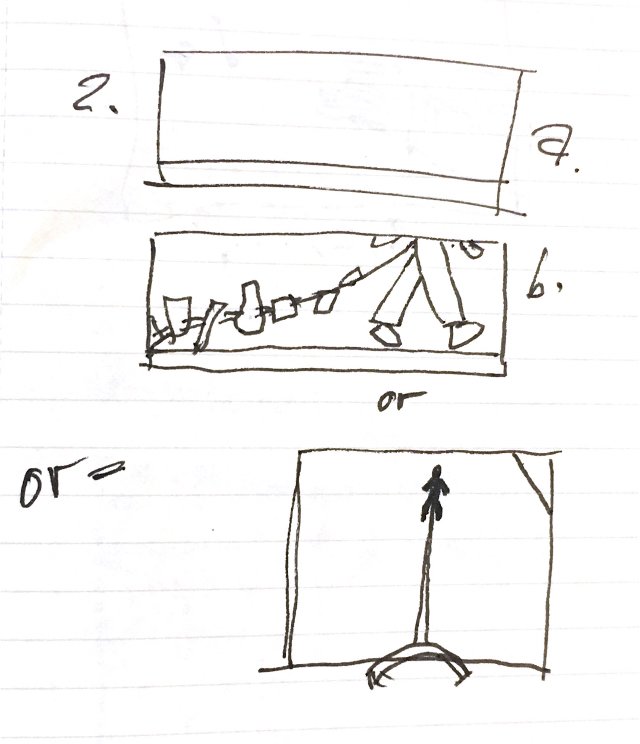 2.
a.
b.
or
or =